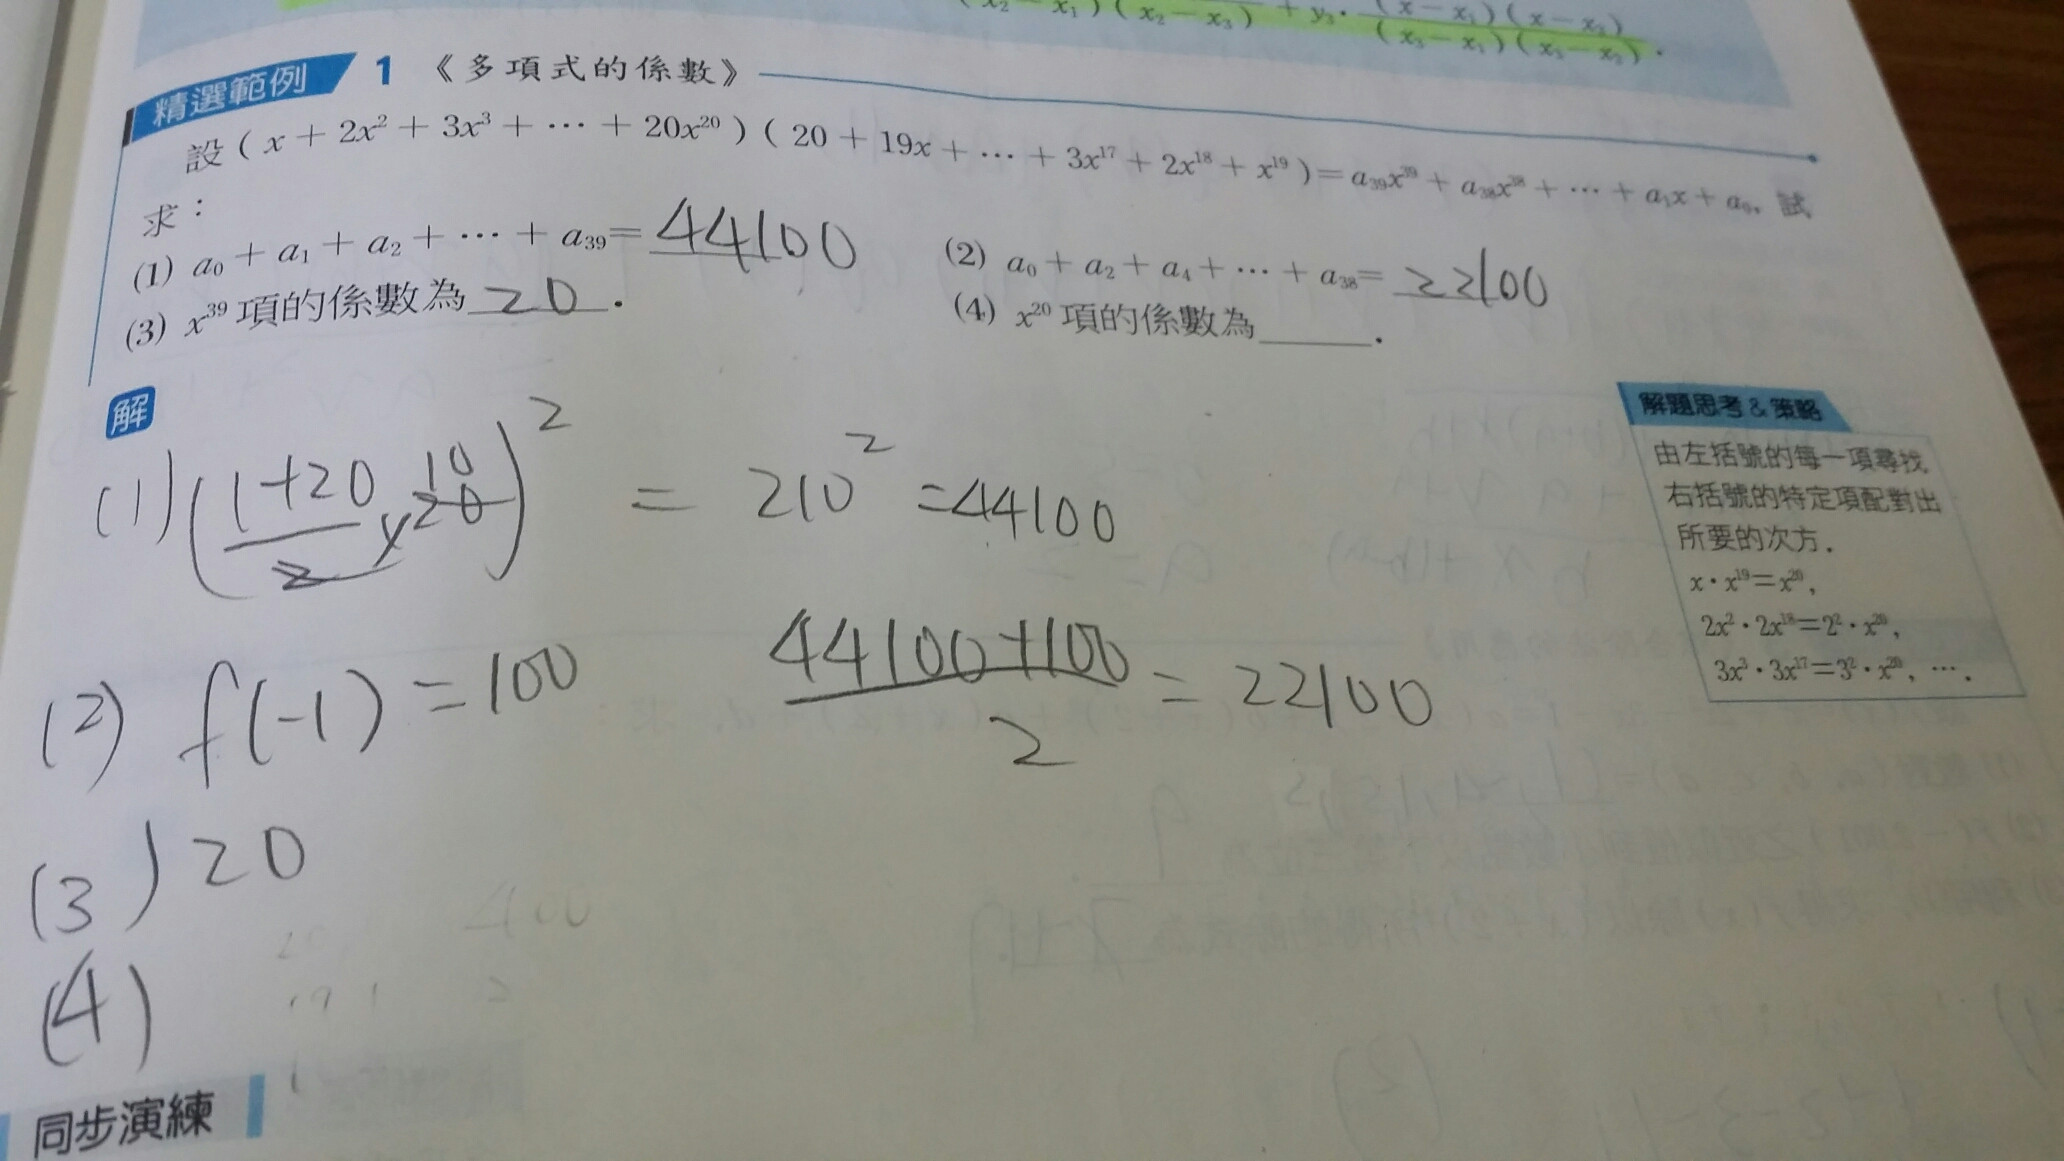 精選範例 1 《多項式的係數》
設(x+2x²+3x³+⋯+20x²⁰)(20+19x+⋯+3x¹⁷+2x¹⁸+x¹⁹)=a₃₉x³⁹+a₃₈x³⁸+⋯+a₁x+a₀, 試
求:
(1) a₀+a₁+a₂+⋯+a₃₉=44100
(2) a₀+a₂+a₄+⋯+a₃₈=22100
(3) x³⁹項的係數為20.
(4) x²⁰項的係數為______.
解
(1)((1+20)/2×20 10)²=210²=44100
(2) f(-1)=100 (44100+100)/2=22100
(3)20
(4)
解題思考&策略
由左括號的每一項尋找
右括號的特定項配對出
所要的次方.
x·x¹⁹=x²⁰,
2x²·2x¹⁸=2²·x²⁰,
3x³·3x¹⁷=3²·x²⁰, ⋯.
同步演練